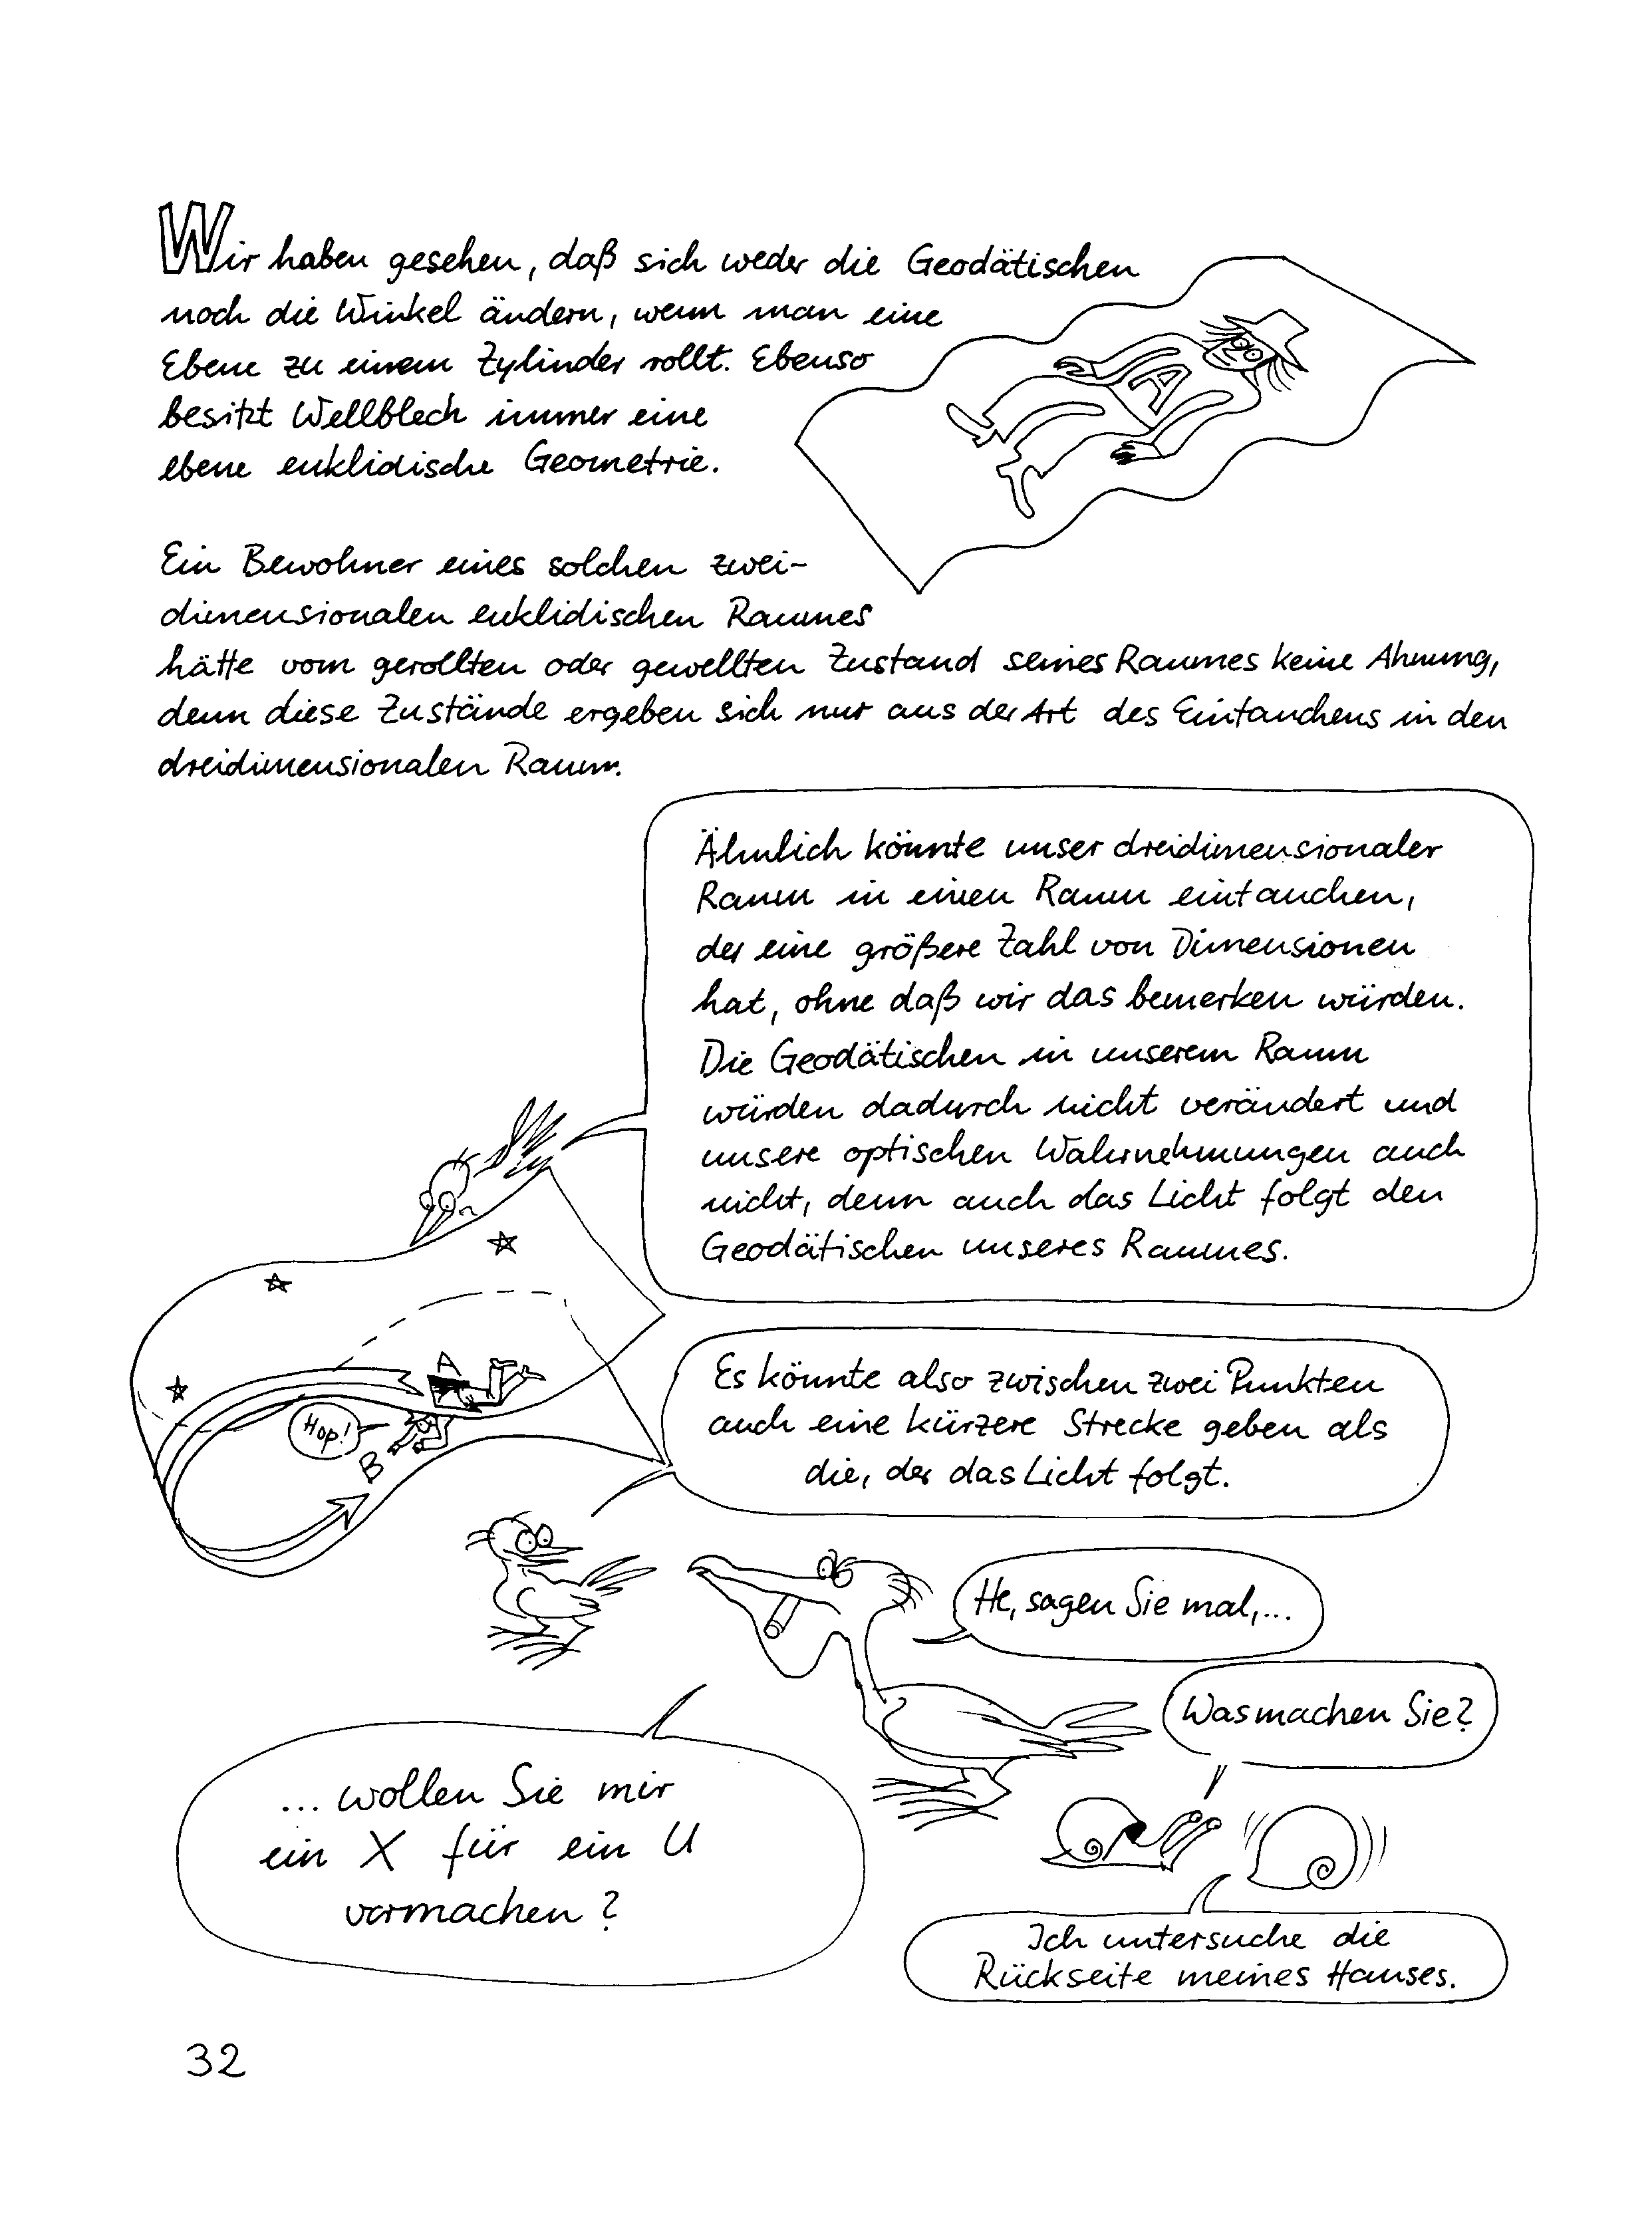 Wir haben gesehen, daß sich weder die Geodätischen
noch die Winkel ändern, wenn man eine
Ebene zu einem Zylinder rollt. Ebenso
besitzt Wellblech immer eine
ebene euklidische Geometrie.
A
Ein Bewohner eines solchen zwei-
dimensionalen euklidischen Raumes
hätte vom gerollten oder gewellten Zustand seines Raumes keine Ahnung,
denn diese Zustände ergeben sich nur aus der Art des Eintauchens in den
dreidimensionalen Raum.
Ähnlich könnte unser dreidimensionaler
Raum in einen Raum eintauchen,
der eine größere Zahl von Dimensionen
hat, ohne daß wir das bemerken würden.
Die Geodätischen in unserem Raum
würden dadurch nicht verändert und
unsere optischen Wahrnehmungen auch
nicht, denn auch das Licht folgt den
Geodätischen unseres Raumes.
A
Hop!
B
Es könnte also zwischen zwei Punkten
auch eine kürzere Strecke geben als
die, der das Licht folgt.
He, sagen Sie mal,...
Was machen Sie?
... wollen Sie mir
ein X für ein U
vormachen?
Ich untersuche die
Rückseite meines Hauses.
32